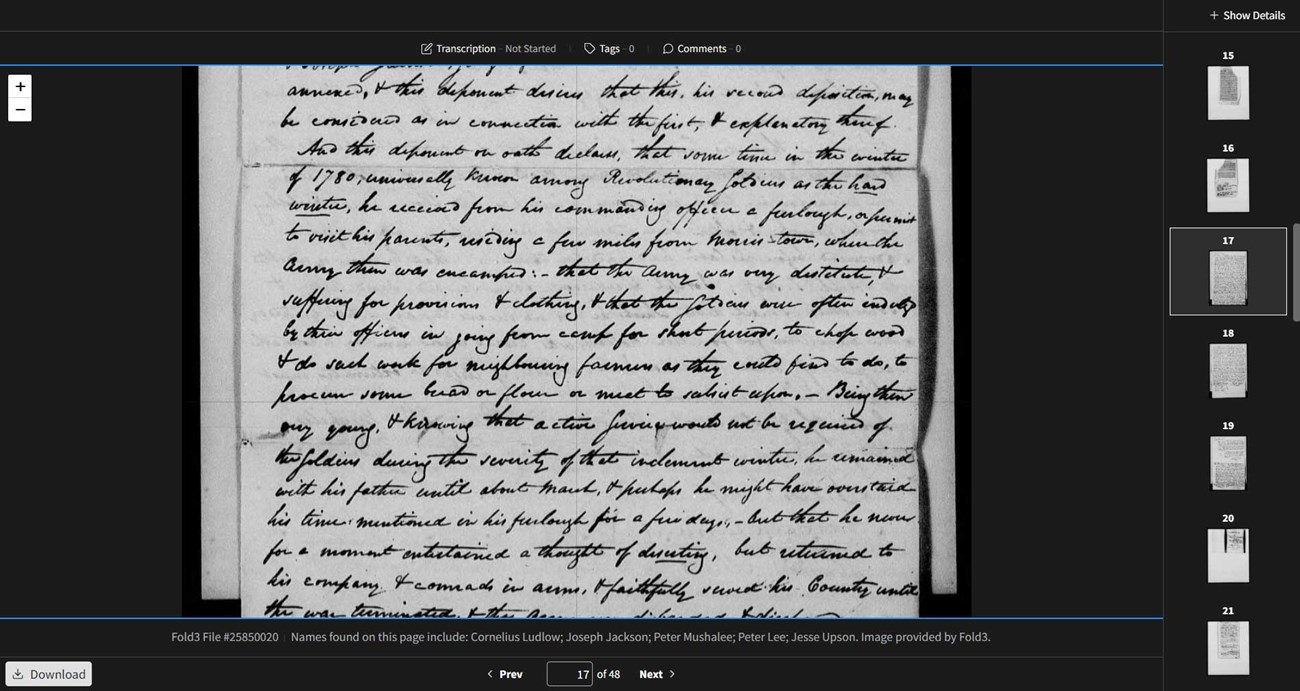 + Show Details
Transcription - Not Started
Tags - 0
Comments - 0
+
−
annexed, & this deponent desires that this, his second deposition, may
be considered as in connection with the first, & explanatory thereof.
And this deponent on oath declares, that some time in the winter
of 1780, universally known among Revolutionary Soldiers as the hard
winter, he received from his commanding officer a furlough, or permit
to visit his parents, residing a few miles from Morris-town, where the
Army then was encamped: - that the Army was very destitute, &
suffering for provisions & clothing, & that the Soldiers were often
by their officers in going from camp for short periods, to chop wood
& do such work for neighbouring farmers as they could find to do, to
procure some bread or flour or meat to subsist upon, - Being then
very young, & knowing that active Service would not be required of
the Soldiers during the severity of that inclement winter, he remained
with his father until about March, & perhaps he might have overstaid
his time mentioned in his furlough for a few days, - but that he never
for a moment entertained a thought of deserting, but returned to
his company & comrads in arms, & faithfully served his Country until
the war terminated, & the
Fold3 File #25850020
Names found on this page include: Cornelius Ludlow; Joseph Jackson; Peter Mushalee; Peter Lee; Jesse Upson. Image provided by Fold3.
Download
Prev
17 of 48
Next
15
16
17
18
19
20
21